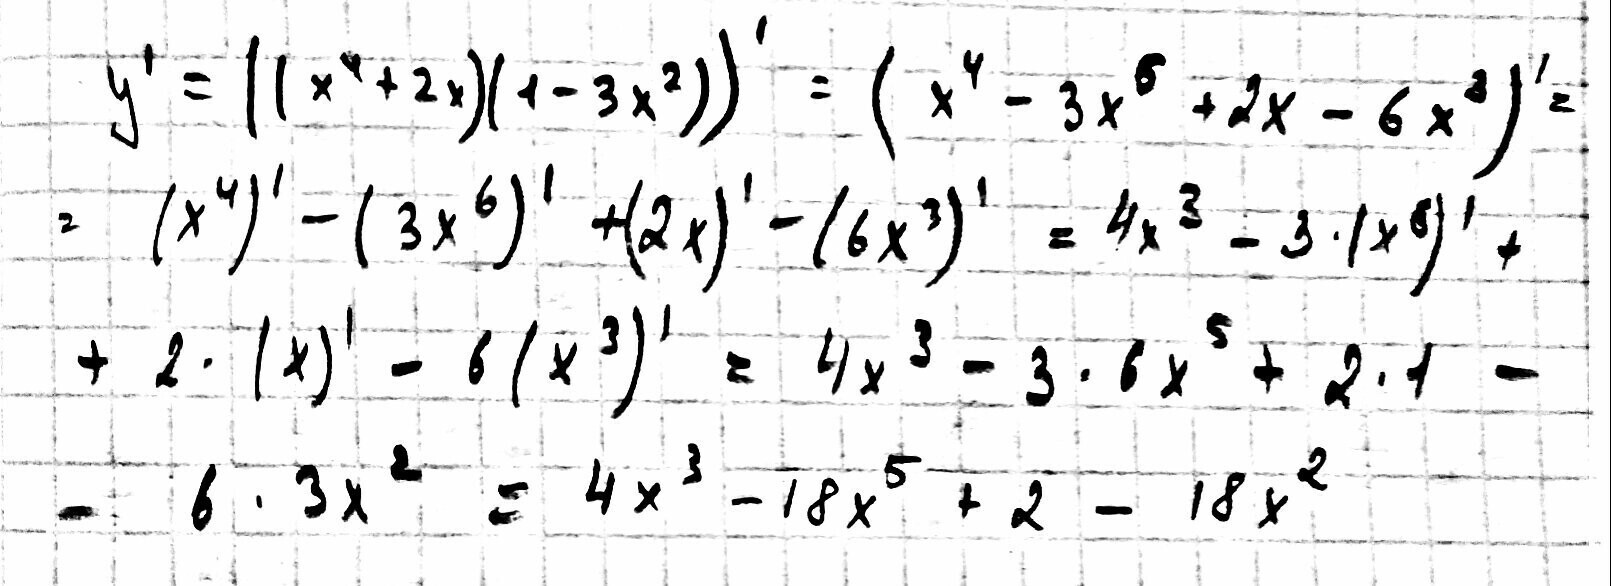 y' = ((x⁴+2x)(1-3x²))' = (x⁴ - 3x⁶ + 2x - 6x³)' =
= (x⁴)' - (3x⁶)' + (2x)' - (6x³)' = 4x³ - 3·(x⁶)' +
+ 2·(x)' - 6(x³)' = 4x³ - 3·6x⁵ + 2·1 -
- 6·3x² = 4x³ - 18x⁵ + 2 - 18x²